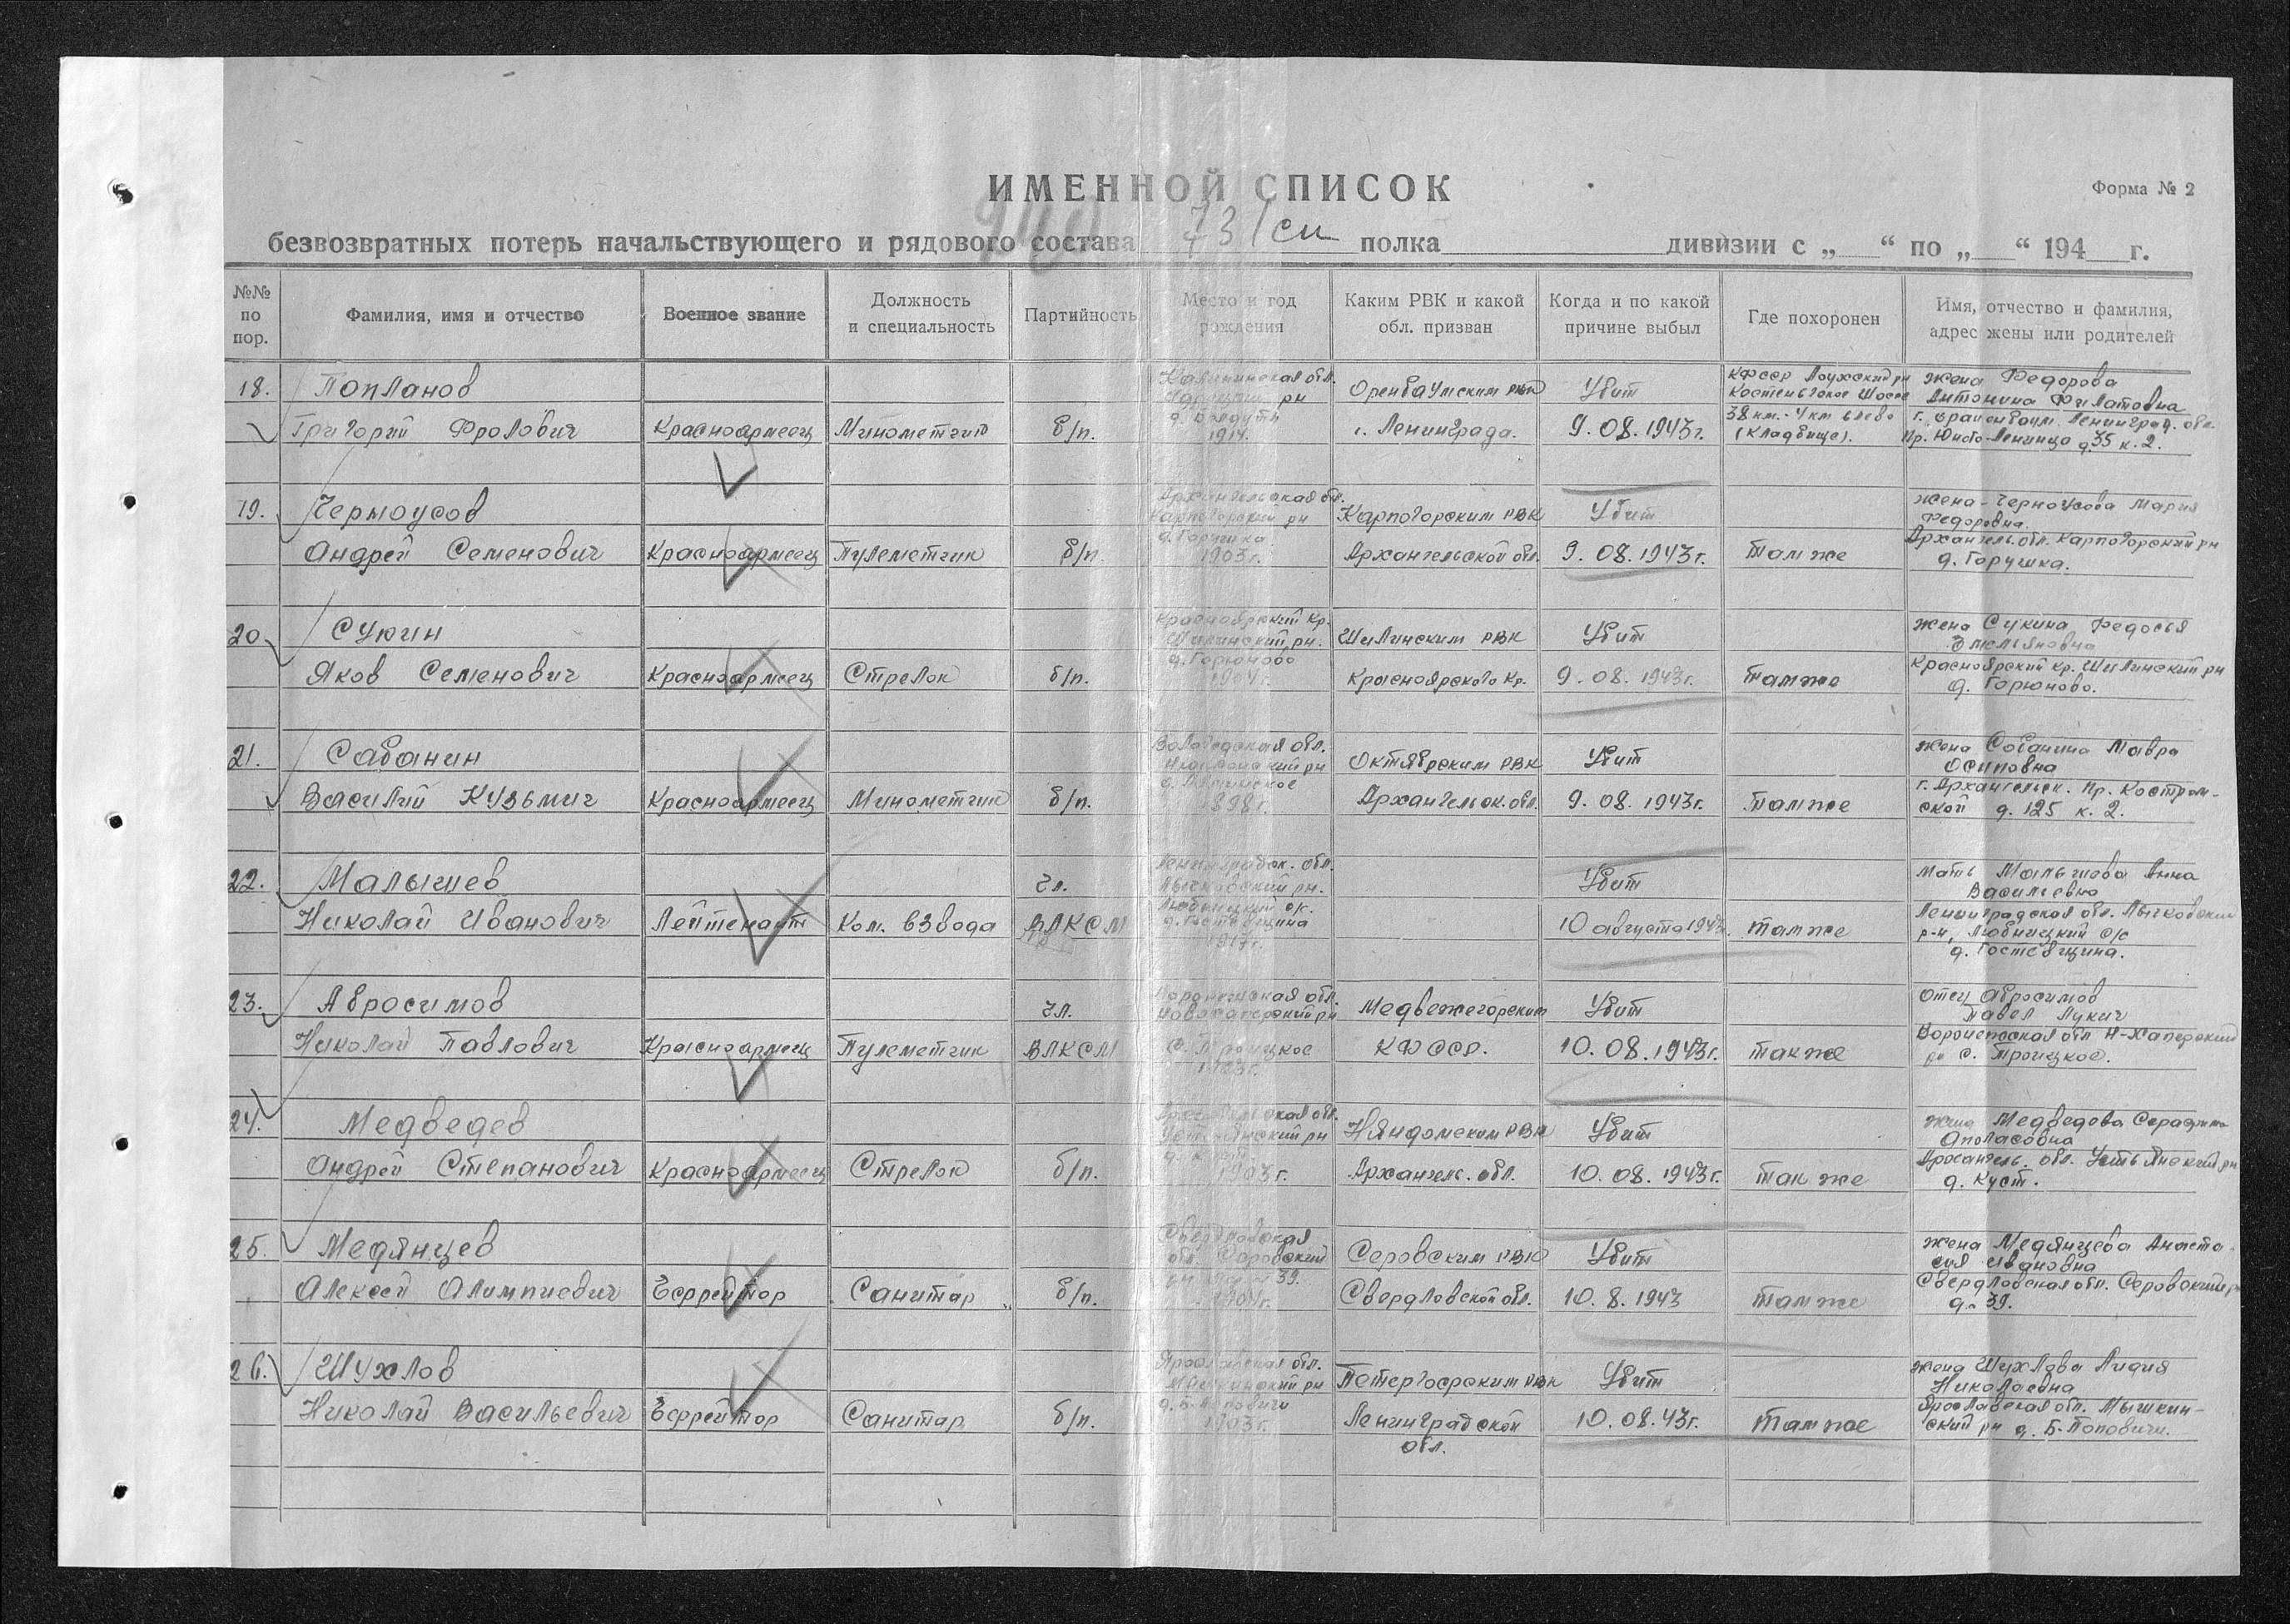 ИМЕННОЙ СПИСОК
Форма № 2
безвозвратных потерь начальствующего и рядового состава 731 сп полка дивизии с „ “ по „ “ 194 г.
№№ по пор.
Фамилия, имя и отчество
Военное звание
Должность и специальность
Партийность
Место и год рождения
Каким РВК и какой обл. призван
Когда и по какой причине выбыл
Где похоронен
Имя, отчество и фамилия, адрес жены или родителей
18. Попланов
Григорий Фролович
Красноармеец
Минометчик
б/п.
Калининская обл.
рн
1914.
Оренбаумским РВК
г. Ленинграда.
Убит
9.08.1943г.
КФССР Лоухский рн
Костеньгское Шоссе
38 км. - 4 км влево
(кладбище).
жена Федорова
Антонина Филатовна
г. Ораненбаум Ленинград. обл.
Пр. Юного Ленинца д.35 к.2.
19. Черноусов
Андрей Семенович
Красноармеец
Пулеметчик
б/п.
Архангельская обл.
Карпогорский рн
д. Горушка
1903г.
Карпогорским РВК
Архангельской обл.
Убит
9.08.1943г.
там же
жена - Черноусова Мария
Федоровна.
Архангель. обл. Карпогорский рн
д. Горушка.
20. Сукин
Яков Семенович
Красноармеец
Стрелок
б/п.
Красноярский кр.
Шилинский рн.
д. Горюново
1904г.
Шилинским РВК
Красноярского кр.
Убит
9.08.1943г.
там же
жена Сукина Федосья
Емельяновна
Красноярский кр. Шилинский рн
д. Горюново.
21. Сабанин
Василий Кузьмич
Красноармеец
Минометчик
б/п.
Вологодская обл.
рн
1898г.
Октябрским РВК
Архангельск. обл.
Убит
9.08.1943г.
там же
жена Сабанина Мавра
Осиповна
г. Архангельск. Пр. Костром-
ской д. 125 к. 2.
22. Малышев
Николай Иванович
Лейтенант
Ком. взвода
Чл.
ВЛКСМ
Ленинградск. обл.
Лычковский рн.
Любницкий с/с.
д. Гостевщина
Убит
10 августа 1943
там же
мать Малышова Анна
Васильевна
Ленинградская обл. Лычковский
р-н, Любницкий с/с
д. Гостевщина.
23. Абросимов
Николай Павлович
Красноармеец
Пулеметчик
чл.
ВЛКСМ
Воронежская обл.
Новохаперский рн
с. Троицкое
1923г.
Медвежегорским
КФССР.
Убит
10.08.1943г.
так же
отец Абросимов
Павел Лукич
Воронежская обл Н-Хаперский
рн с. Троицкое.
24. Медведев
Андрей Степанович
Красноармеец
Стрелок
б/п.
Архангельская обл.
Устьянский рн
д. Куст.
1903г.
Няндомским РВК
Архангель. обл.
Убит
10.08.1943г.
так же
жена Медведова Серафима
Аполасовна
Архангель. обл. Устьянский рн
д. Куст.
25. Медянцев
Алексей Олимпиевич
Ефрейтор
Санитар
б/п.
Свердловская
обл. Серовский
рн 39.
Серовским РВК
Свердловской обл.
Убит
10.8.1943
там же
жена Медянцева Анаста-
сия Ивановна
Свердловская обл. Серовский р
д. 39.
26. Шухлов
Николай Васильевич
Ефрейтор
Санитар
б/п.
Ярославская обл.
Мышкинский рн
д. Б-Поповичи
1903г.
Петергофским РВК
Ленинградской
обл.
Убит
10.08.43г.
там же
жена Шухлова Лидия
Николаевна
Ярославская обл. Мышкин-
ский рн д. Б-Поповичи.